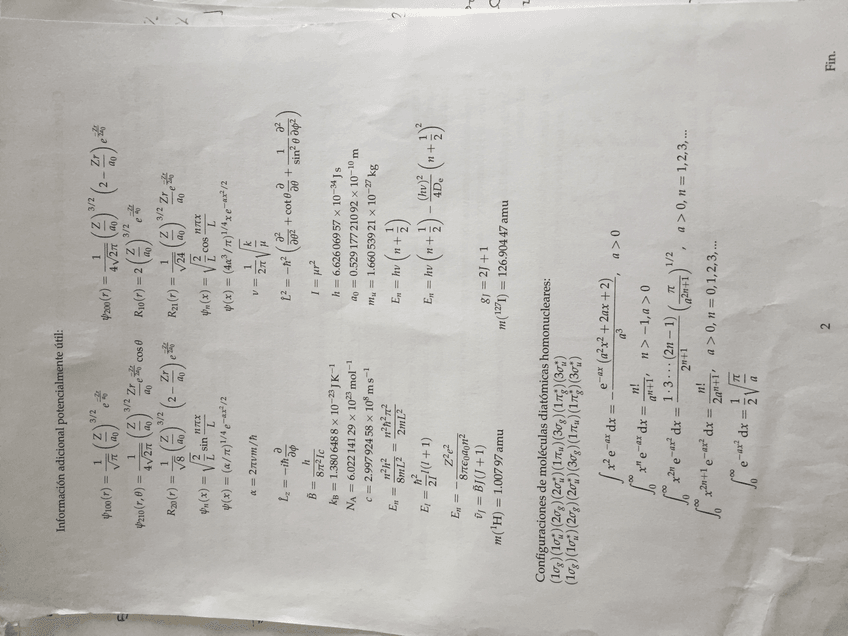 Información adicional potencialmente útil:
ψ₁₀₀(r) = 1/√π (Z/a₀)^{3/2} e^{-Zr/a₀}
ψ₂₀₀(r) = 1/(4√2π) (Z/a₀)^{3/2} (2 − Zr/a₀) e^{-Zr/2a₀}
ψ₂₁₀(r, θ) = 1/(4√2π) (Z/a₀)^{3/2} Zr/a₀ e^{-Zr/2a₀} cos θ
R₁₀(r) = 2 (Z/a₀)^{3/2} e^{-Zr/a₀}
R₂₀(r) = 1/√8 (Z/a₀)^{3/2} (2 − Zr/a₀) e^{-Zr/2a₀}
R₂₁(r) = 1/√24 (Z/a₀)^{3/2} Zr/a₀ e^{-Zr/2a₀}
ψₙ(x) = √(2/L) sin nπx/L
ψₙ(x) = √(2/L) cos nπx/L
ψ(x) = (α/π)^{1/4} e^{-αx²/2}
ψ(x) = (4α³/π)^{1/4} x e^{-αx²/2}
α = 2πνm/ℏ
ν = 1/2π √(k/μ)
L̂_z = −iℏ ∂/∂φ
L̂² = −ℏ² (∂²/∂θ² + cot θ ∂/∂θ + 1/sin² θ ∂²/∂φ²)
B̃ = h/8π²Ic
I = μr²
k_B = 1.380 648 8 × 10⁻²³ J K⁻¹
h = 6.626 069 57 × 10⁻³⁴ J s
N_A = 6.022 141 29 × 10²³ mol⁻¹
a₀ = 0.529 177 210 92 × 10⁻¹⁰ m
c = 2.997 924 58 × 10⁸ m s⁻¹
m_u = 1.660 539 21 × 10⁻²⁷ kg
Eₙ = n²h²/8mL² = n²ℏ²π²/2mL²
Eₙ = hν (n + 1/2)
E_l = ℏ²/2I l(l + 1)
Eₙ = hν (n + 1/2) − (hν)²/4D_e (n + 1/2)²
Eₙ = − Z²e²/8πε₀a₀n²
ν̃_J = B̃J(J + 1)
g_J = 2J + 1
m(¹H) = 1.007 97 amu
m(¹²⁷I) = 126.904 47 amu
Configuraciones de moléculas diatómicas homonucleares:
(1σ_g)(1σ_u*)(2σ_g)(2σ_u*)(1π_u)(3σ_g)(1π_g*)(3σ_u*)
(1σ_g)(1σ_u*)(2σ_g)(2σ_u*)(3σ_g)(1π_u)(1π_g*)(3σ_u*)
∫ x² e^{-ax} dx = − e^{-ax} (a²x² + 2ax + 2)/a³, a > 0
∫₀^∞ xⁿ e^{-ax} dx = n!/a^{n+1}, n > −1, a > 0
∫₀^∞ x^{2n} e^{-ax²} dx = 1 · 3 ··· (2n − 1)/2^{n+1} (π/a^{2n+1})^{1/2}, a > 0, n = 1, 2, 3, ...
∫₀^∞ x^{2n+1} e^{-ax²} dx = n!/2a^{n+1}, a > 0, n = 0, 1, 2, 3, ...
∫₀^∞ e^{-ax²} dx = 1/2 √(π/a)
2
Fin.